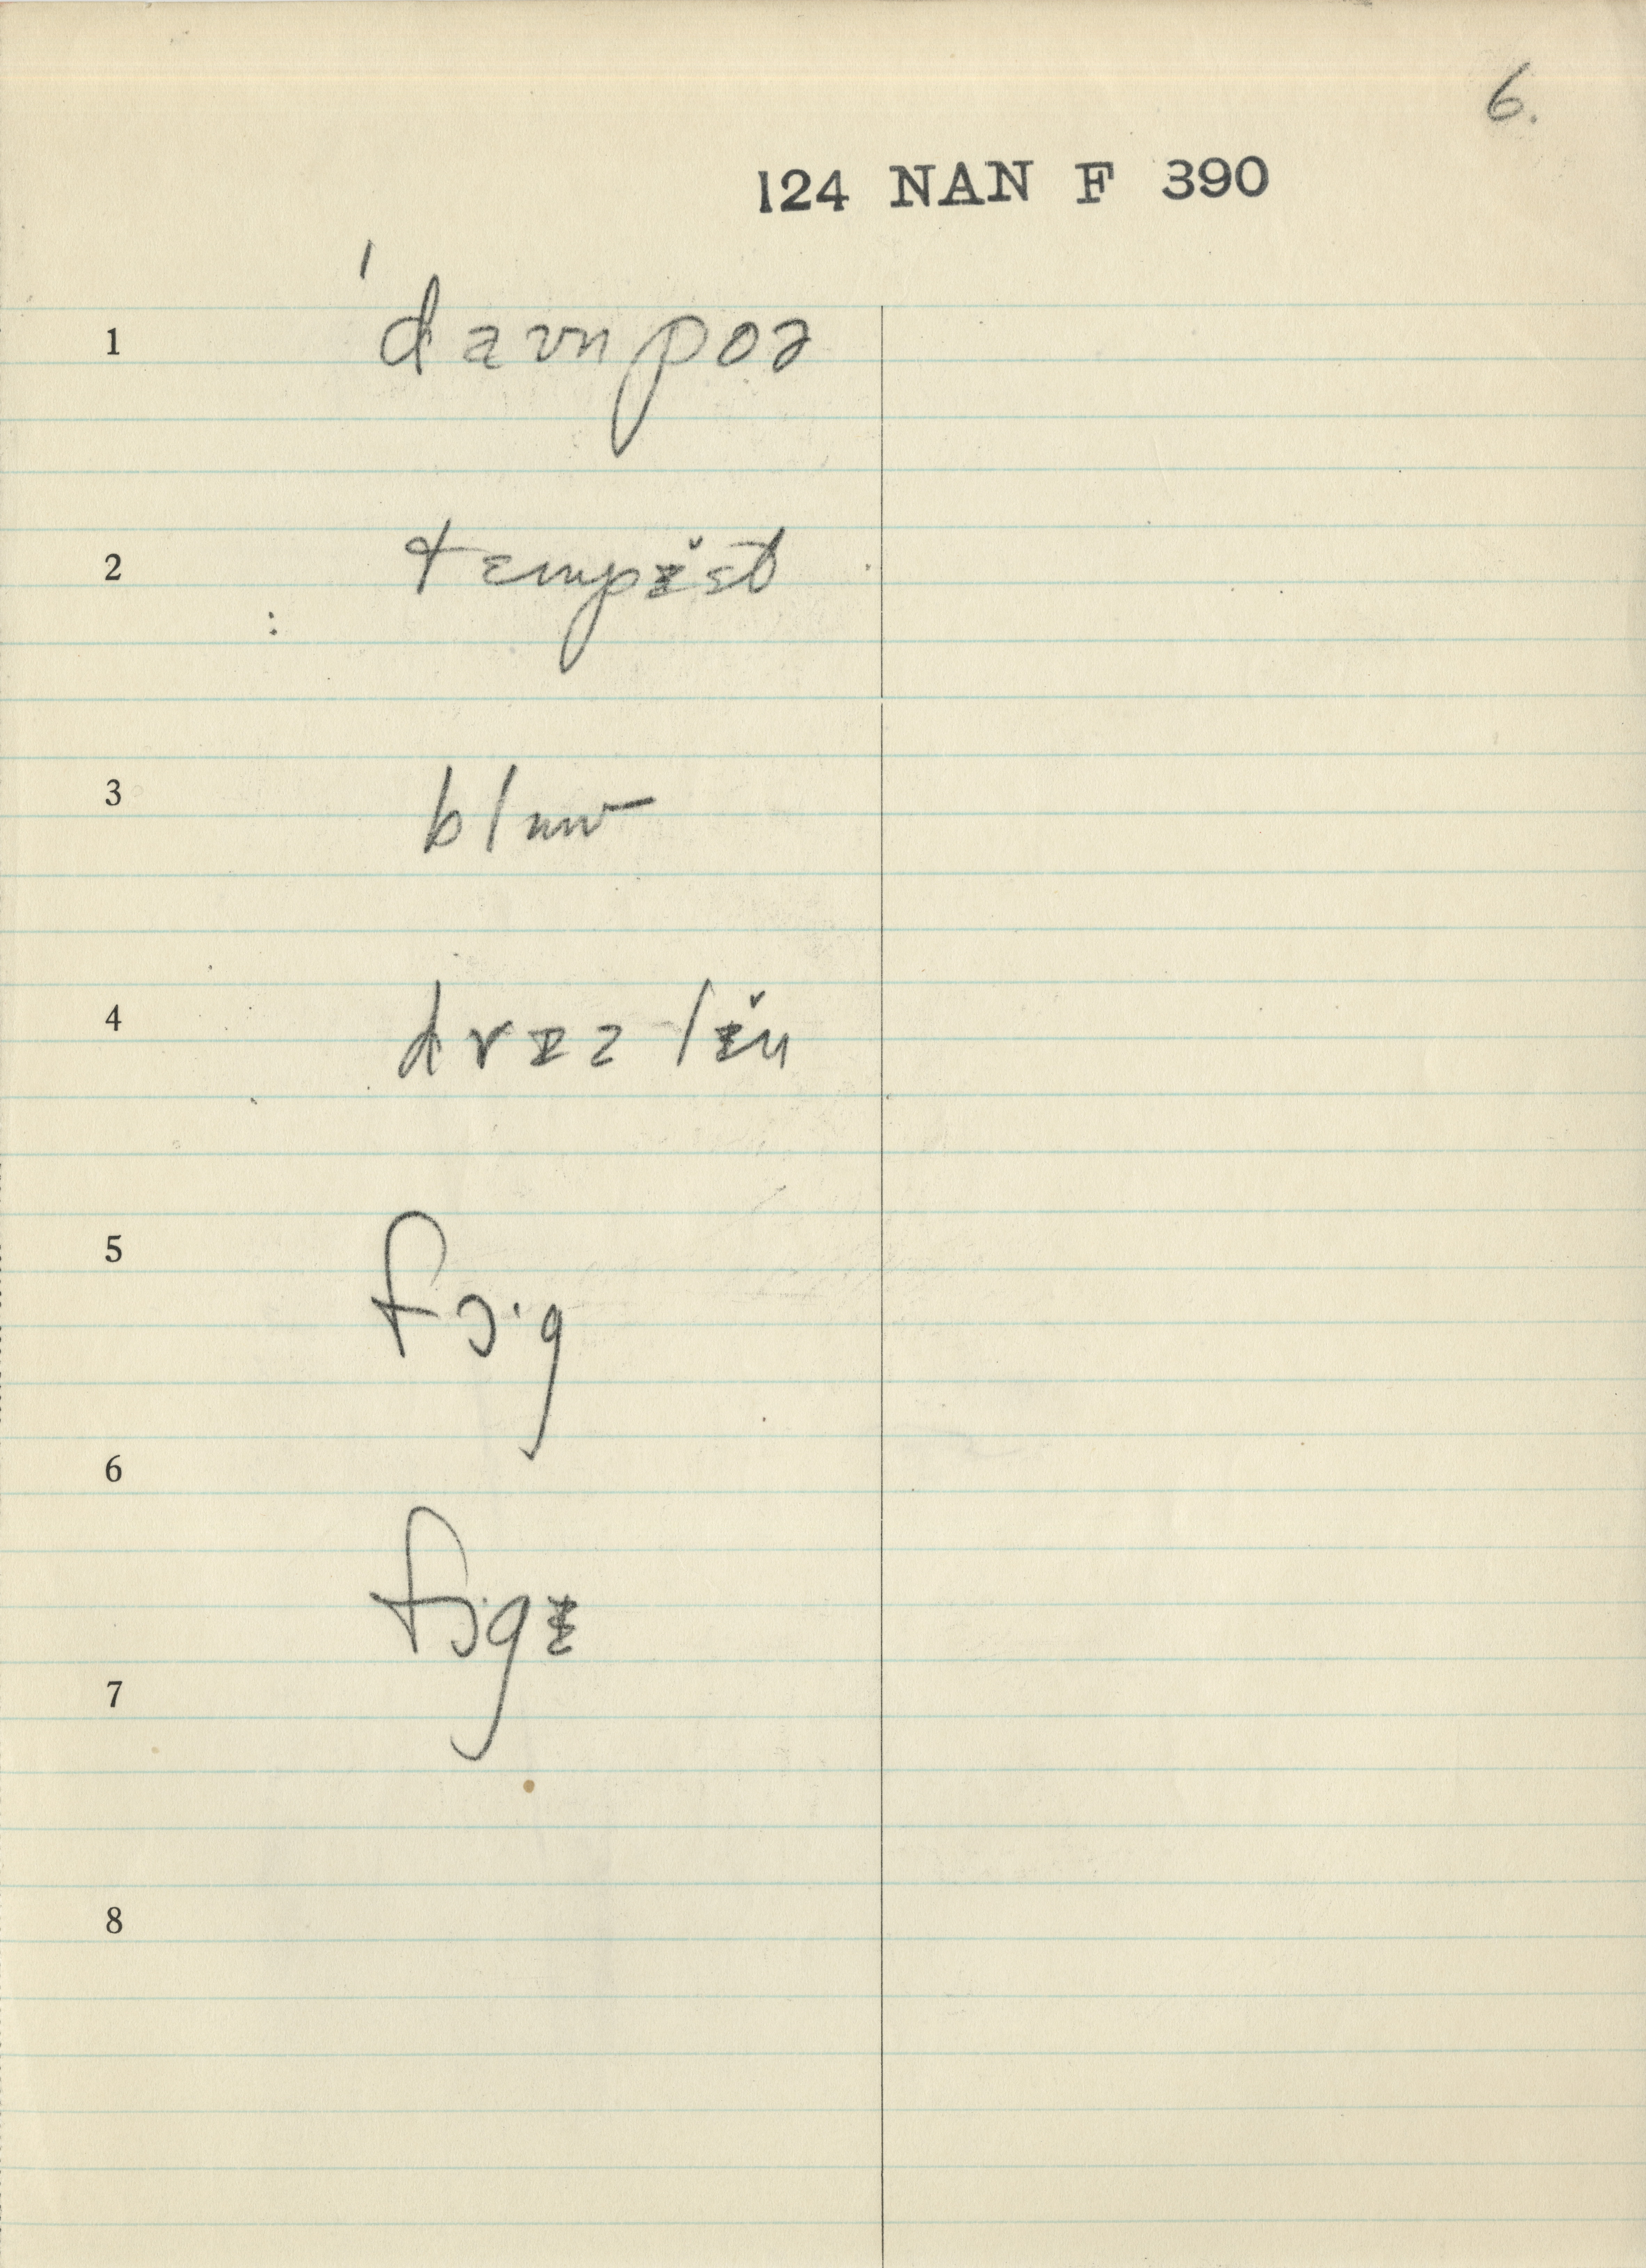 6.
124 NAN F 390
1 ˈdaʊnpoə
2 tɛmpɪ̆st
3
4 drɪzlɪ̆n
5 fɔ·g
6 fɔ·gɪ
7
8